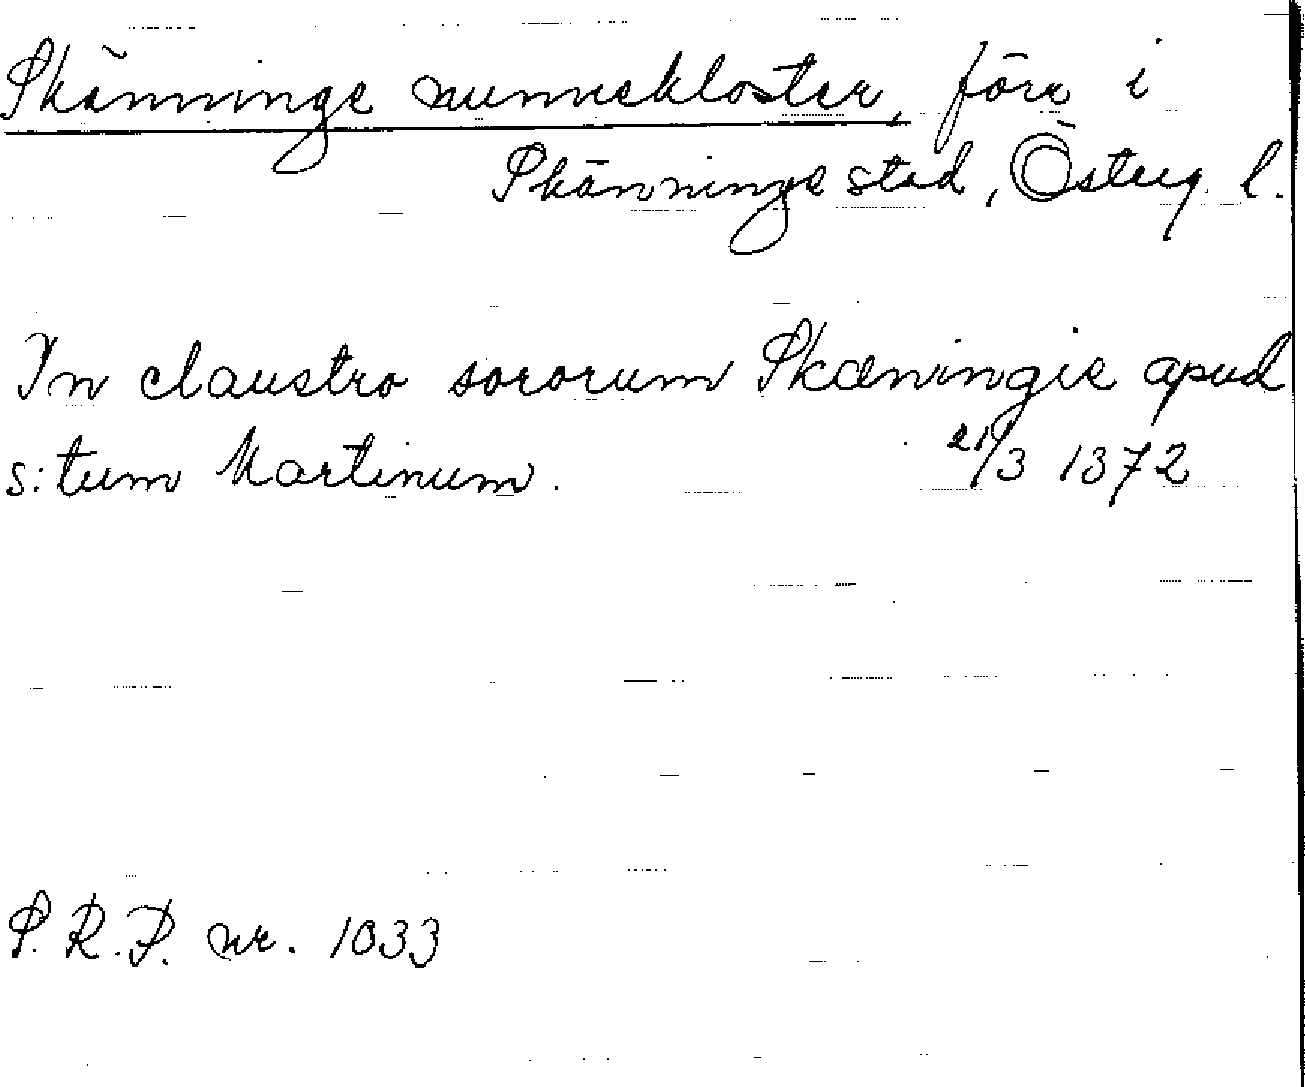 Skänninge nunnekloster, förr i
Skänninge stad, Österg. l.
In claustro sororum Skæningie apud
s:tum Martinum. 21/3 1372
S. R. P. nr. 1033